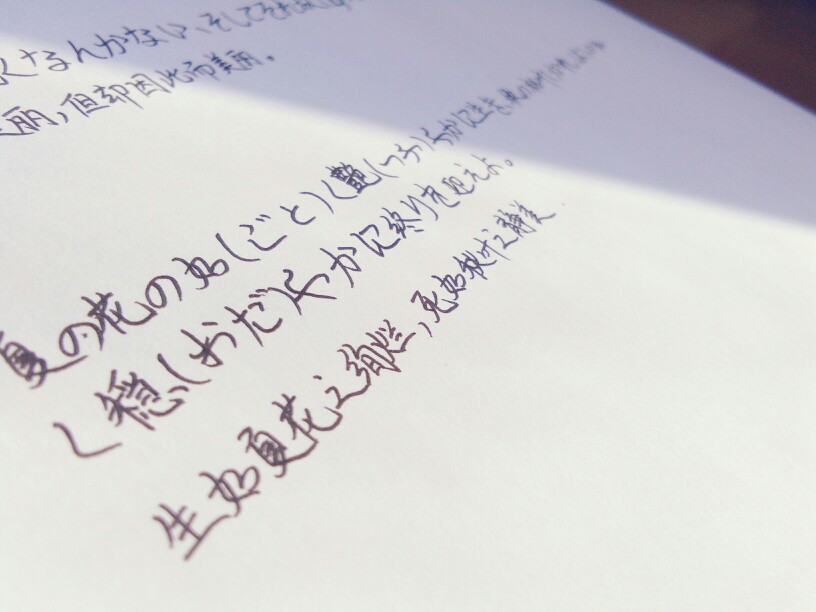 くなんかない、そしてそれ
丽，但却因此而美丽。
夏の花の如(ごと)く艶(つや)やかに生き、秋の
く穏(おだ)やかに終りを迎えよ。
生如夏花之绚烂，死如秋叶之静美.